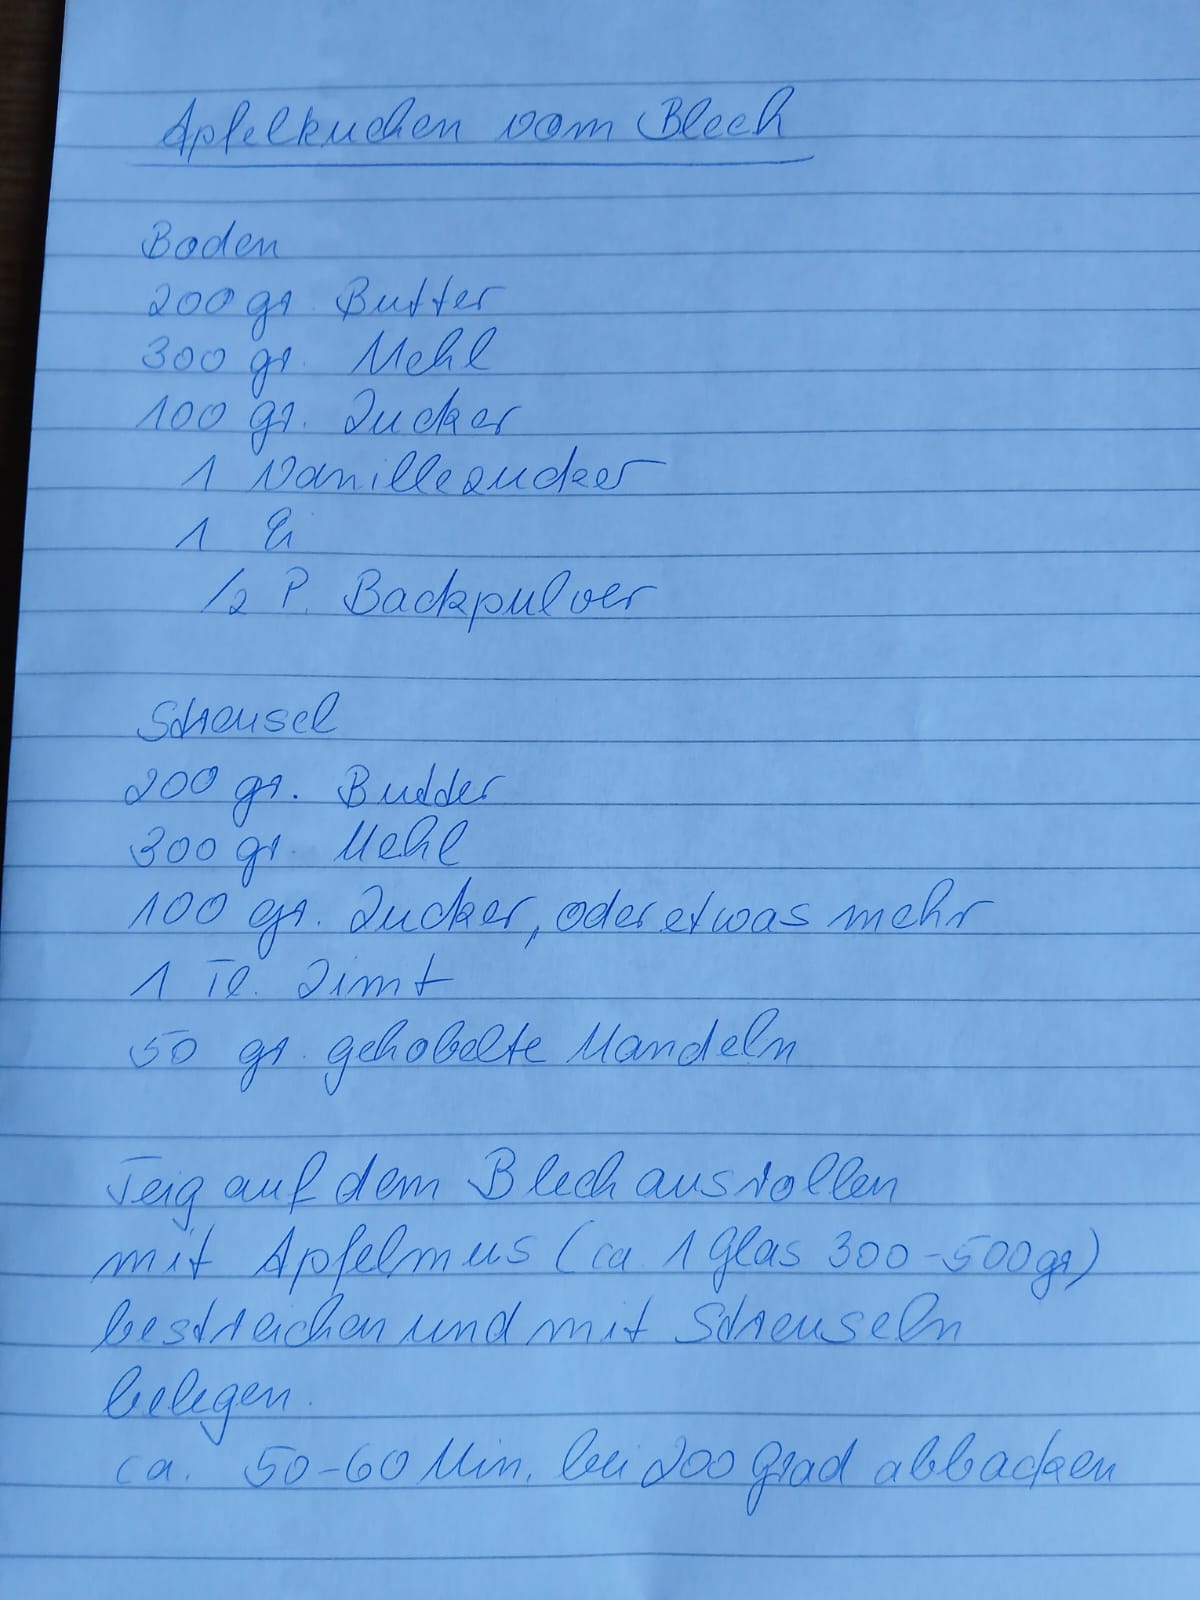 Apfelkuchen vom Blech
Boden
200 gr. Butter
300 gr. Mehl
100 gr. Zucker
1 Vanillezucker
1 Ei
1/2 P. Backpulver
Streusel
200 gr. Butter
300 gr. Mehl
100 gr. Zucker, oder etwas mehr
1 Tl. Zimt
50 gr. gehobelte Mandeln
Teig auf dem Blech ausrollen
mit Apfelmus (ca. 1 Glas 300-500gr)
bestreichen und mit Streuseln
belegen.
ca. 50-60 Min. bei 200 Grad abbacken